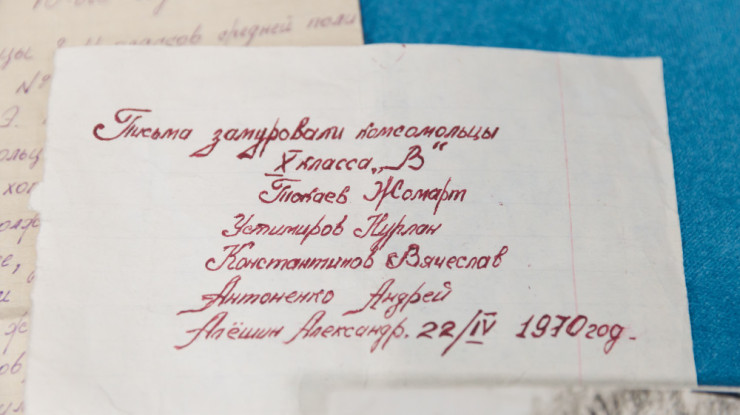 цы 8-
классов средней поли
№
Письма замуровали комсомольцы
X класса „В“
Токаев Жомарт
Устимиров Нурлан
Константинов Вячеслав
Антоненко Андрей
Алёшин Александр. 22/IV 1970 год.